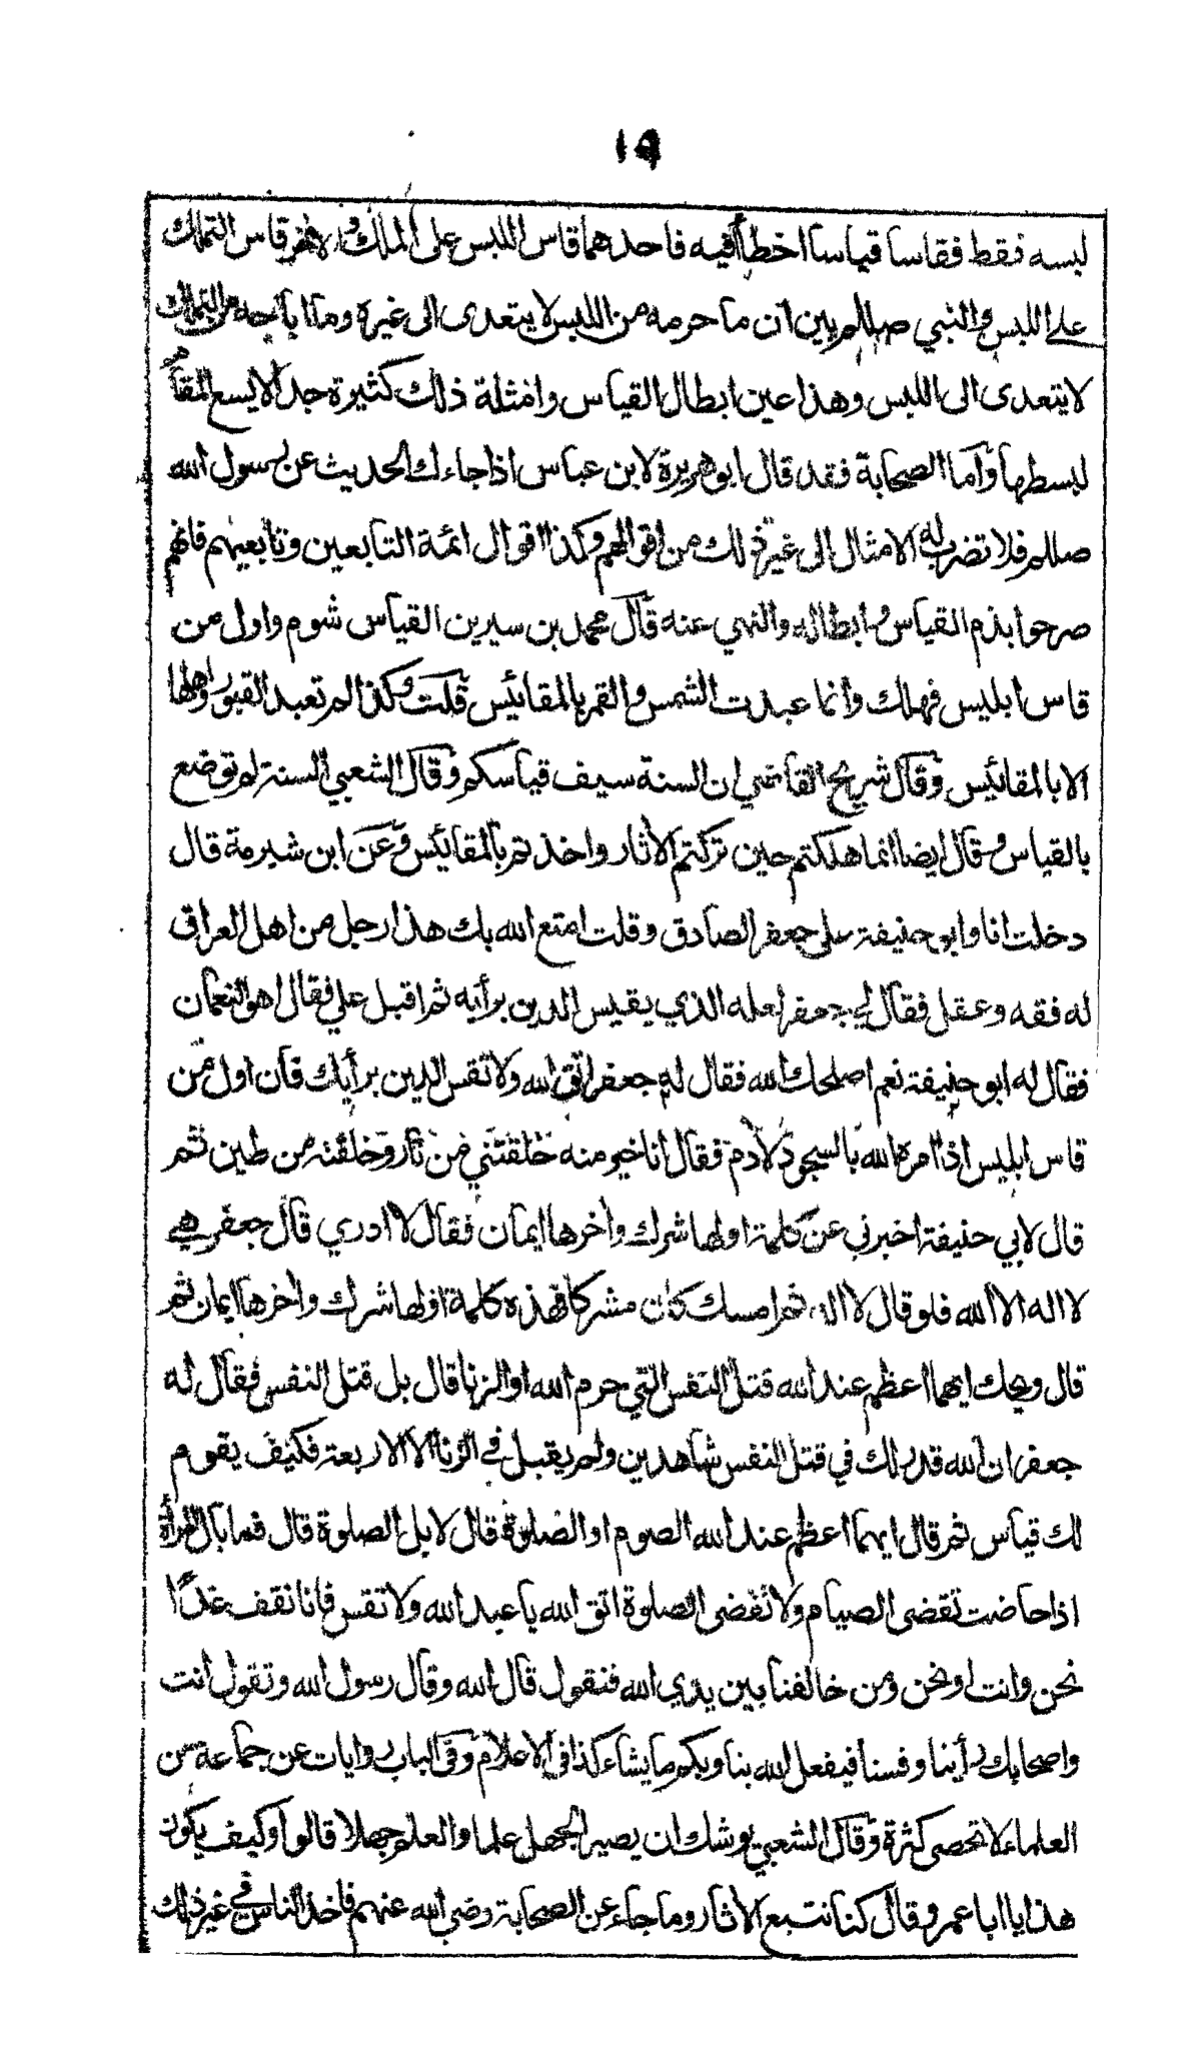 ١٩
لبسه فقط فقاسا قياسا اخطأ فيه فاحدهما قاس اللبس على الملك والاخر قاس التملك
على اللبس والنبي صللم بين ان ما حرمه من اللبس لا يتعدى الى غيره وما اباحه من التملك
لا يتعدى الى اللبس وهذا عين ابطال القياس وامثلة ذلك كثيرة جدا لا يسع المقام
لبسطها وأما الصحابة فقد قال ابو هريرة لابن عباس اذا جاءك الحديث عن رسول الله
صللم فلا تضرب له الامثال الى غير ذلك من اقوالهم وكذا اقوال ائمة التابعين وتابعيهم فانهم
صرحوا بذم القياس وابطاله والنهي عنه قال محمد بن سيرين القياس شوم واول من
قاس ابليس فهلك وانما عبدت الشمس والقمر بالمقائيس قلت وكذا لم تعبد القبور واهلها
الا بالمقائيس وقال شريح القاضي ان السنة سيف قياسكم وقال الشعبي السنة لم توضع
بالقياس وقال ايضا انما هلكتم حين تركتم الأثار واخذتم بالمقائيس وعن ابن شبرمة قال
دخلت انا وابو حنيفة على جعفر الصادق وقلت امتع الله بك هذا رجل من اهل العراق
له فقه وعقل فقال لي جعفر لعله الذي يقيس الدين برأيه ثم اقبل علي فقال اهو النعمان
فقال له ابو حنيفة نعم اصلحك الله فقال له جعفر اتق الله ولا تقس الدين برأيك فان اول من
قاس ابليس اذ أمره الله بالسجود لأدم فقال انا خير منه خلقتني من نار وخلقته من طين ثم
قال لابي حنيفة اخبرني عن كلمة اولها شرك وأخرها ايمان فقال لا ادري قال جعفر هي
لا اله الا الله فلو قال لا اله ثم امسك كان مشركا فهذه كلمة اولها شرك وأخرها ايمان ثم
قال ويحك ايهما اعظم عند الله قتل النفس التي حرم الله او الزنا قال بل قتل النفس فقال له
جعفر ان الله قد لك في قتل النفس شاهدين ولم يقبل في الزنا الا الاربعة فكيف يقوم
لك قياس ثم قال ايهما اعظم عند الله الصوم او الصلوة قال لا بل الصلوة قال فما بال المرأة
اذا حاضت تقضى الصيام ولا تقضى الصلوة اتق الله يا عبد الله ولا تقس فإنا نقف غدًا
نحن وانت او نحن ومن خالفنا بين يدي الله فنقول قال الله وقال رسول الله وتقول انت
واصحابك رأينا وقسنا فيفعل الله بنا وبكم ما يشاء كذا في الاعلام وفي الباب روايات عن جماعة من
العلماء لا تحصى كثرة وقال الشعبي يوشك ان يصير الجهل علما والعلم جهلا قالوا وكيف يكون
هذا يا ابا عمرو قال كنا نتبع الأثار وما جاء عن الصحابة رضي الله عنهم فاخذ الناس في غير ذلك